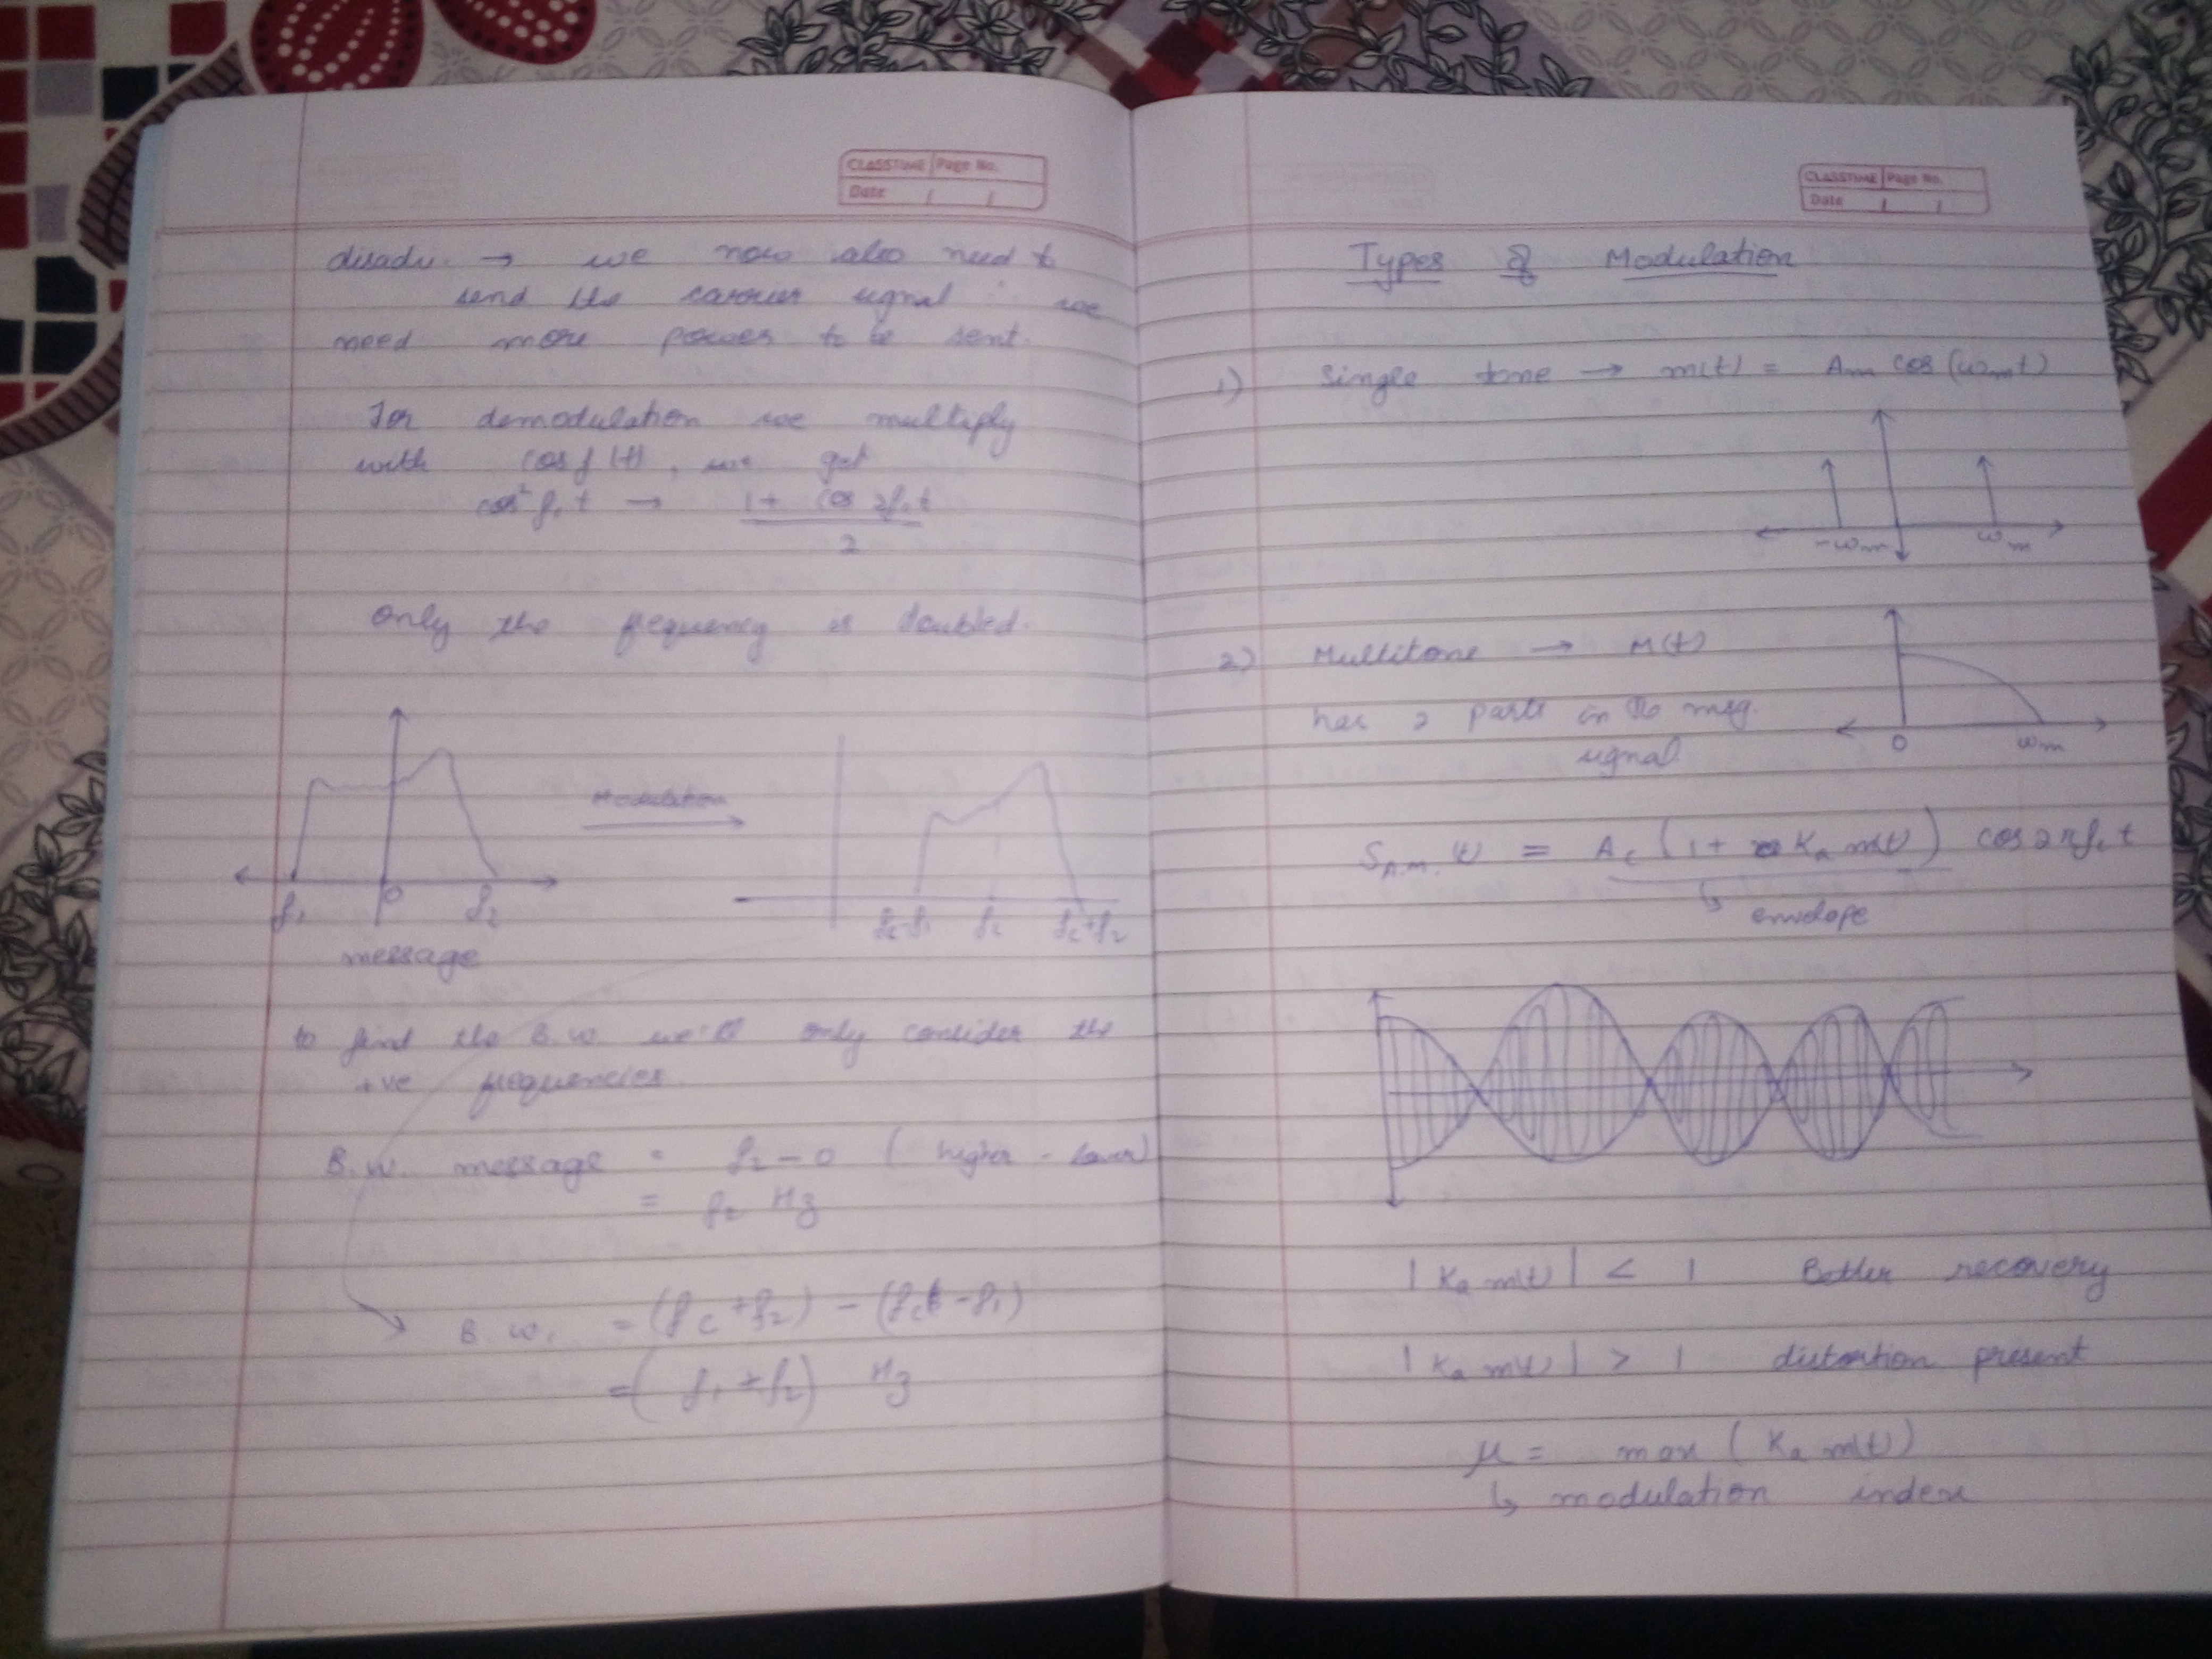 CLASSTIME Page No.
Date / /
disadv. → we now also need to
send the carrier signal ∴ we
need more power to be sent.
For demodulation we multiply
with cos f(t), we get
cos² fct → 1 + cos 2fct
2
Only the frequency is doubled.
Modulation
f1 0 f2
fc-f1 fc fc+f2
message
to find the B.W. we'll only consider the
+ve frequencies.
B.W. message = f2 - 0 (higher - lower)
= f2 Hz
B.W. = (fc + f2) - (fc - f1)
= (f1 + f2) Hz
CLASSTIME Page No.
Date / /
Types of Modulation
1) Single tone → m(t) = Am cos (ωmt)
-ωm ωm
2) Multitone → M(t)
has 2 parts in the msg.
signal.
0 ωm
SA.M. (t) = Ac (1 + Ka m(t)) cos 2πfct
↳ envelope
| Ka m(t) | < 1 Better recovery
| Ka m(t) | > 1 distortion present
μ = max ( Ka m(t))
↳ modulation index